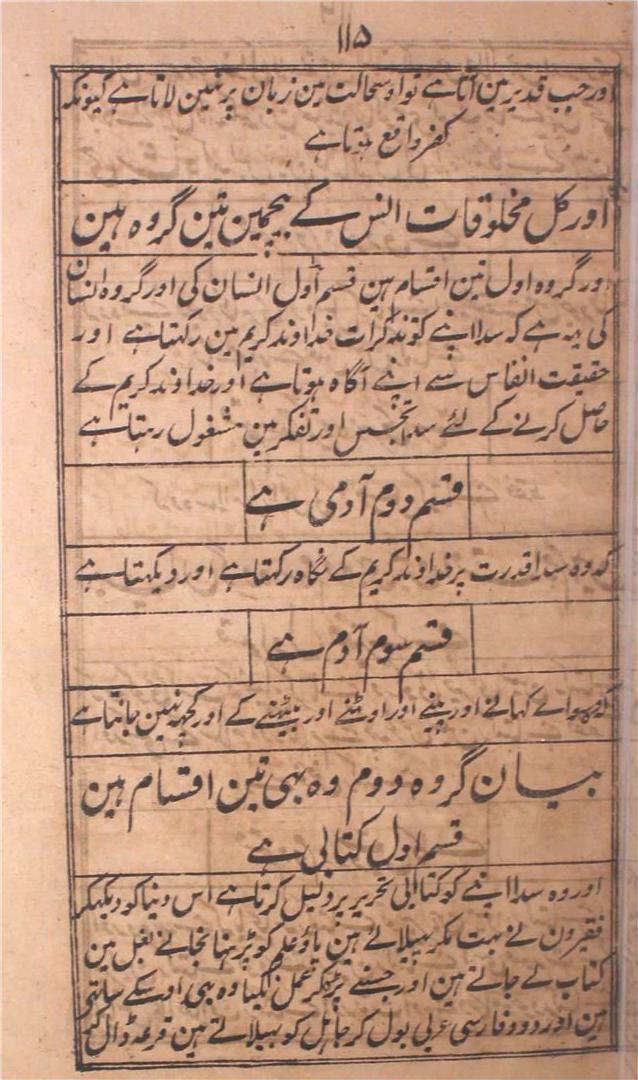 ۱۱۵
اور جب قدیر مین آتا ہے تو اوسحالت مین زبان پر نہین لاتا ہے کیونکہ
کفر واقع ہوتا ہے
اور کل مخلوقات انس کے بیچمین تین گروہ ہین
اور گروہ اول تین اقسام ہین قسم اول انسان کی اور گروہ انسان
کی یہ ہے کہ سدا اپنے کو تذکرات خداوند کریم مین رکہتا ہے اور
حقیقت انفاس سے اپنے آگاہ ہوتا ہے اور خداوند کریم کے
حاصل کرنے کے لئے سدا تجسس اور تفکر مین مشغول رہتا ہے
قسم دوم آدمی ہے
کہ وہ سدا قدرت پر خداوند کریم کے نگاہ رکہتا ہے اور دیکہتا ہے
قسم سوم آدم ہے
کہ وہ سوائے کہانے اور پینے اور اوٹہنے اور بیٹہنے کے اور کچہہ نہین جانتا ہے
بیان گروہ دوم وہ بہی تین اقسام ہین
قسم اول کتابی ہے
اور وہ سدا اپنے کو کتابی تحریر پر دلیل کرتا ہے اس دنیا کو دیکہکر
فقیرون نے بہت مکر پہیلائے ہین پاؤ علم کو پڑہنا نجانے بغل مین
کتاب لے جاتے ہین اور جسنے پڑہکر عمل نکیا وہ بہی اوسکے ساتہی
ہین اور دو دو فارسی عربی بول کر جاہل کو بہلاتے ہین قرعہ ڈال کر